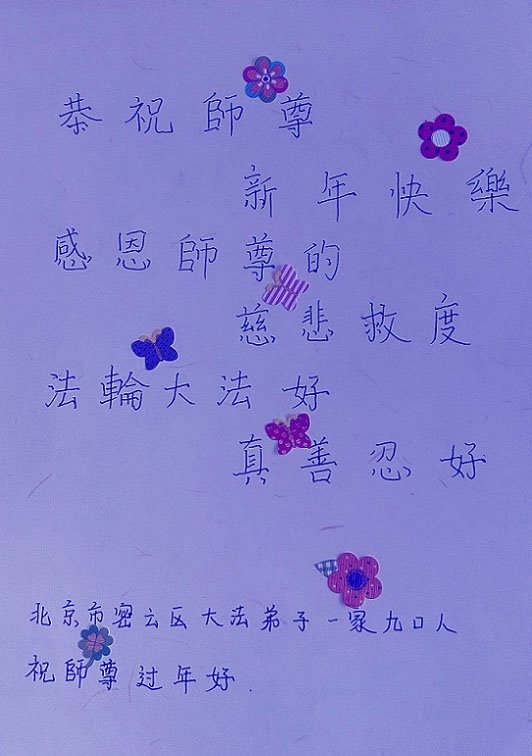 恭祝師尊
新年快樂
感恩師尊的
慈悲救度
法輪大法好
真善忍好
北京市密云区大法弟子一家九口人
祝師尊过年好.